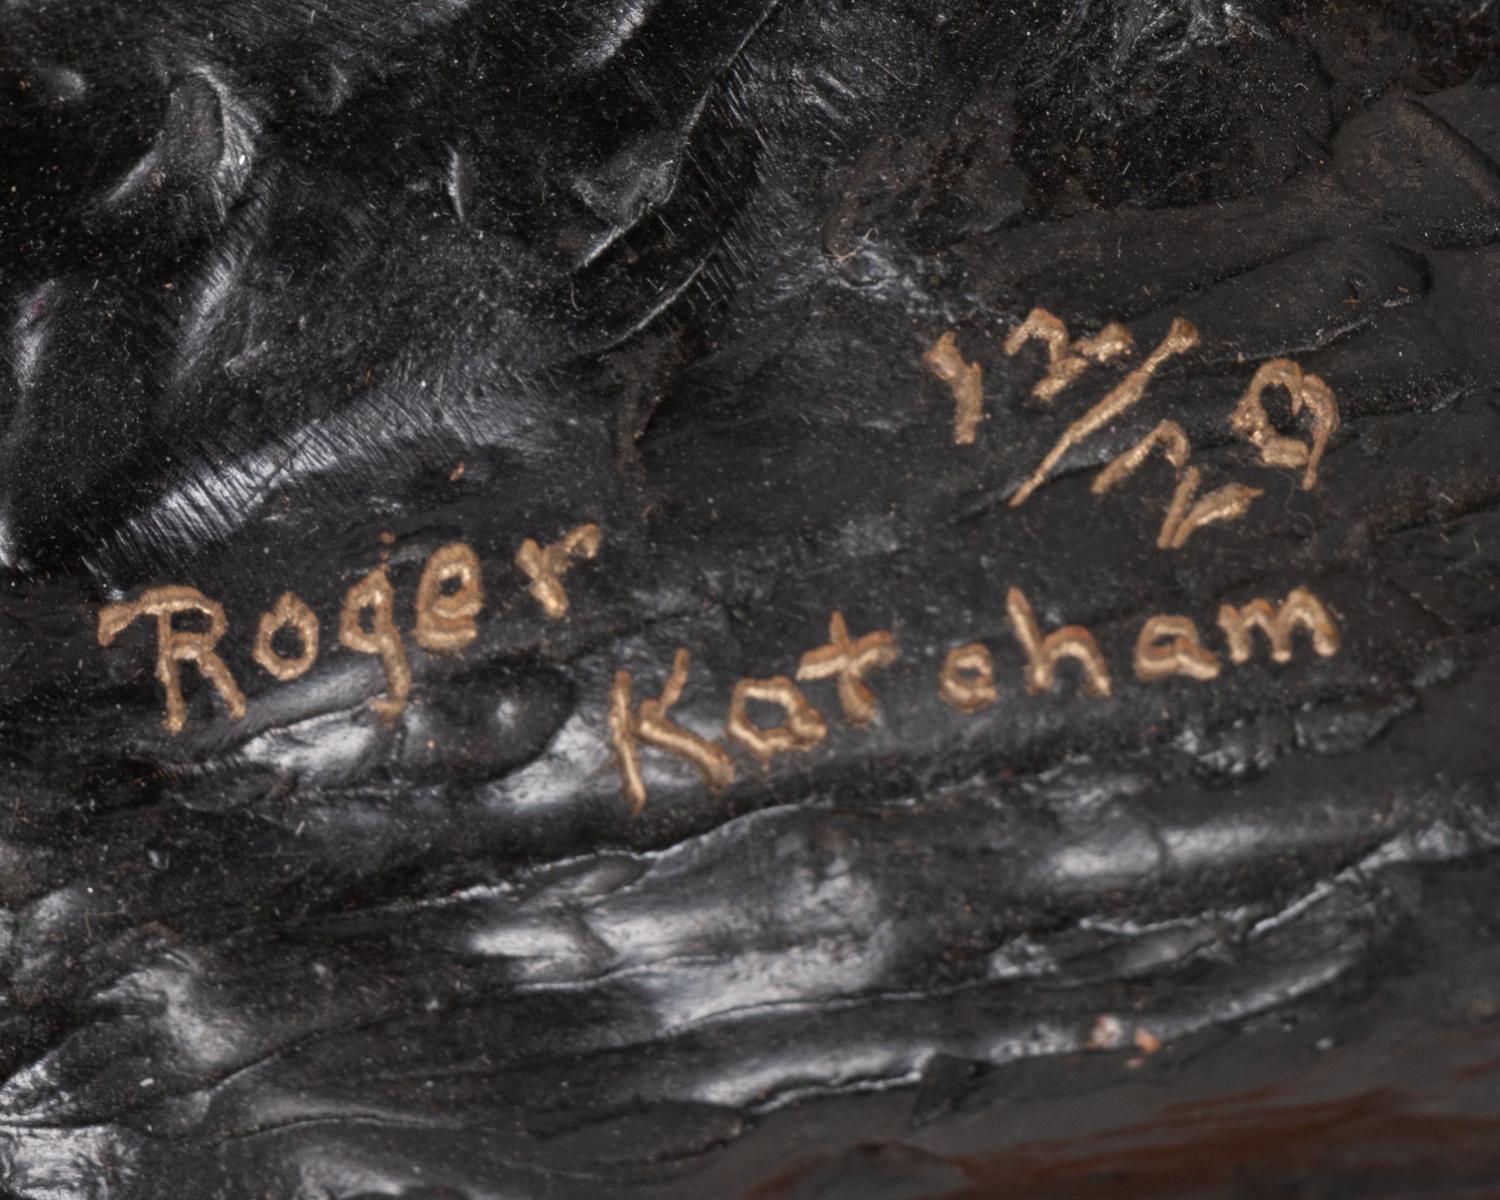 12/20
Roger
Katcham